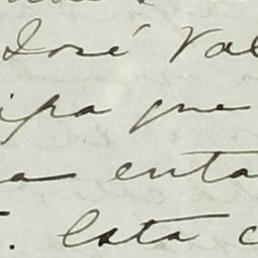 José Val
ipa que
a enta
. Cata c